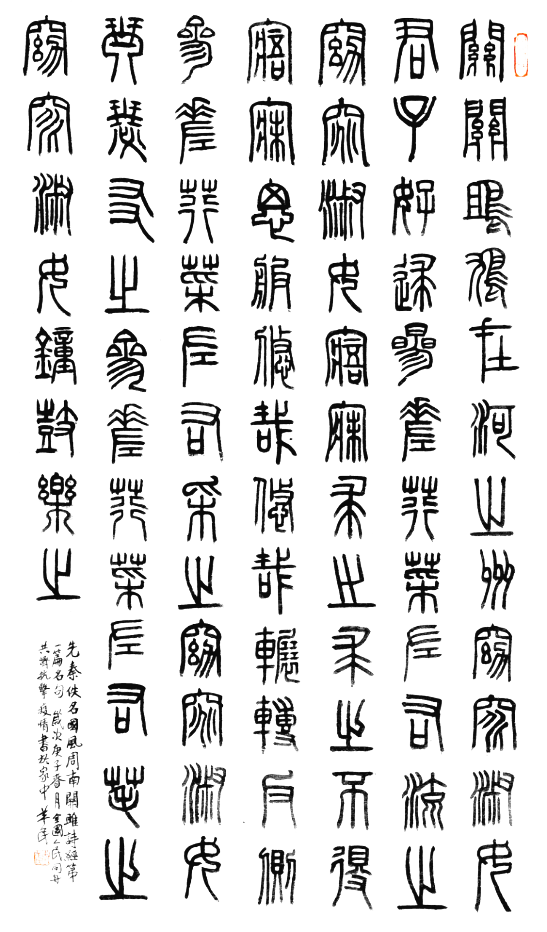 關關雎鳩在河之州窈窕淑女
君子好逑參差荇菜左右流之
窈窕淑女寤寐求之求之不得
寤寐思服悠哉悠哉輾轉反側
參差荇菜左右采之窈窕淑女
琴瑟友之參差荇菜左右芼之
窈窕淑女鐘鼓樂之
先秦佚名國風周南關雎詩經第
一篇名句歲次庚子春月全國人民同舟
共濟抗擊疫情書於家中